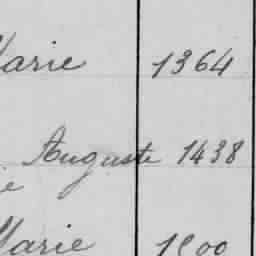 Marie 1364
Auguste 1438
e
Marie 1500